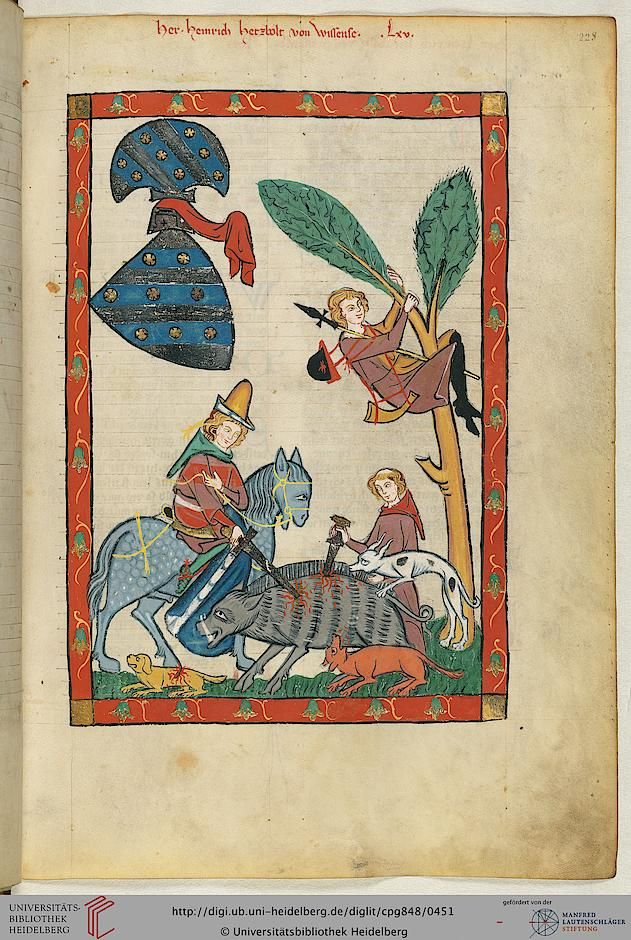 Her· Heinrich hetzbolt von Wissense· .Lxv.
228
UNIVERSITÄTS-
BIBLIOTHEK
HEIDELBERG
http://digi.ub.uni-heidelberg.de/diglit/cpg848/0451
© Universitätsbibliothek Heidelberg
gefördert von der
MANFRED
LAUTENSCHLÄGER
STIFTUNG